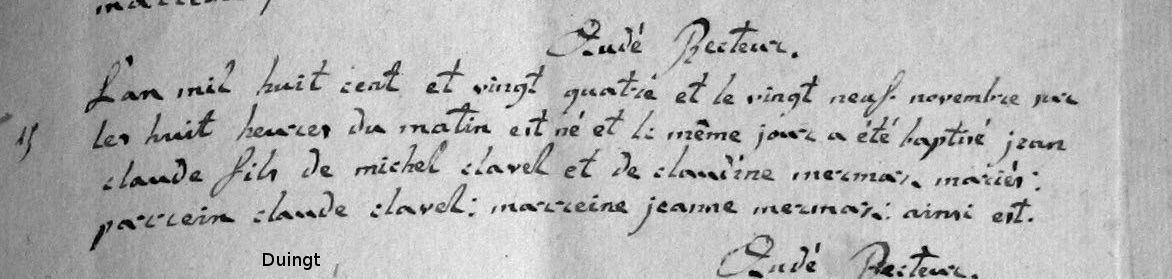 Oudé Recteur.
L'an mil huit cent et vingt quatre et le vingt neuf novembre sur
15 les huit heures du matin est né et le même jour a été baptisé jean
claude fils de michel clavel et de claudine mermaz mariés:
parrein claude clavel: marreine jeanne mermaz: ainsi est.
Duingt
Oudé Recteur.